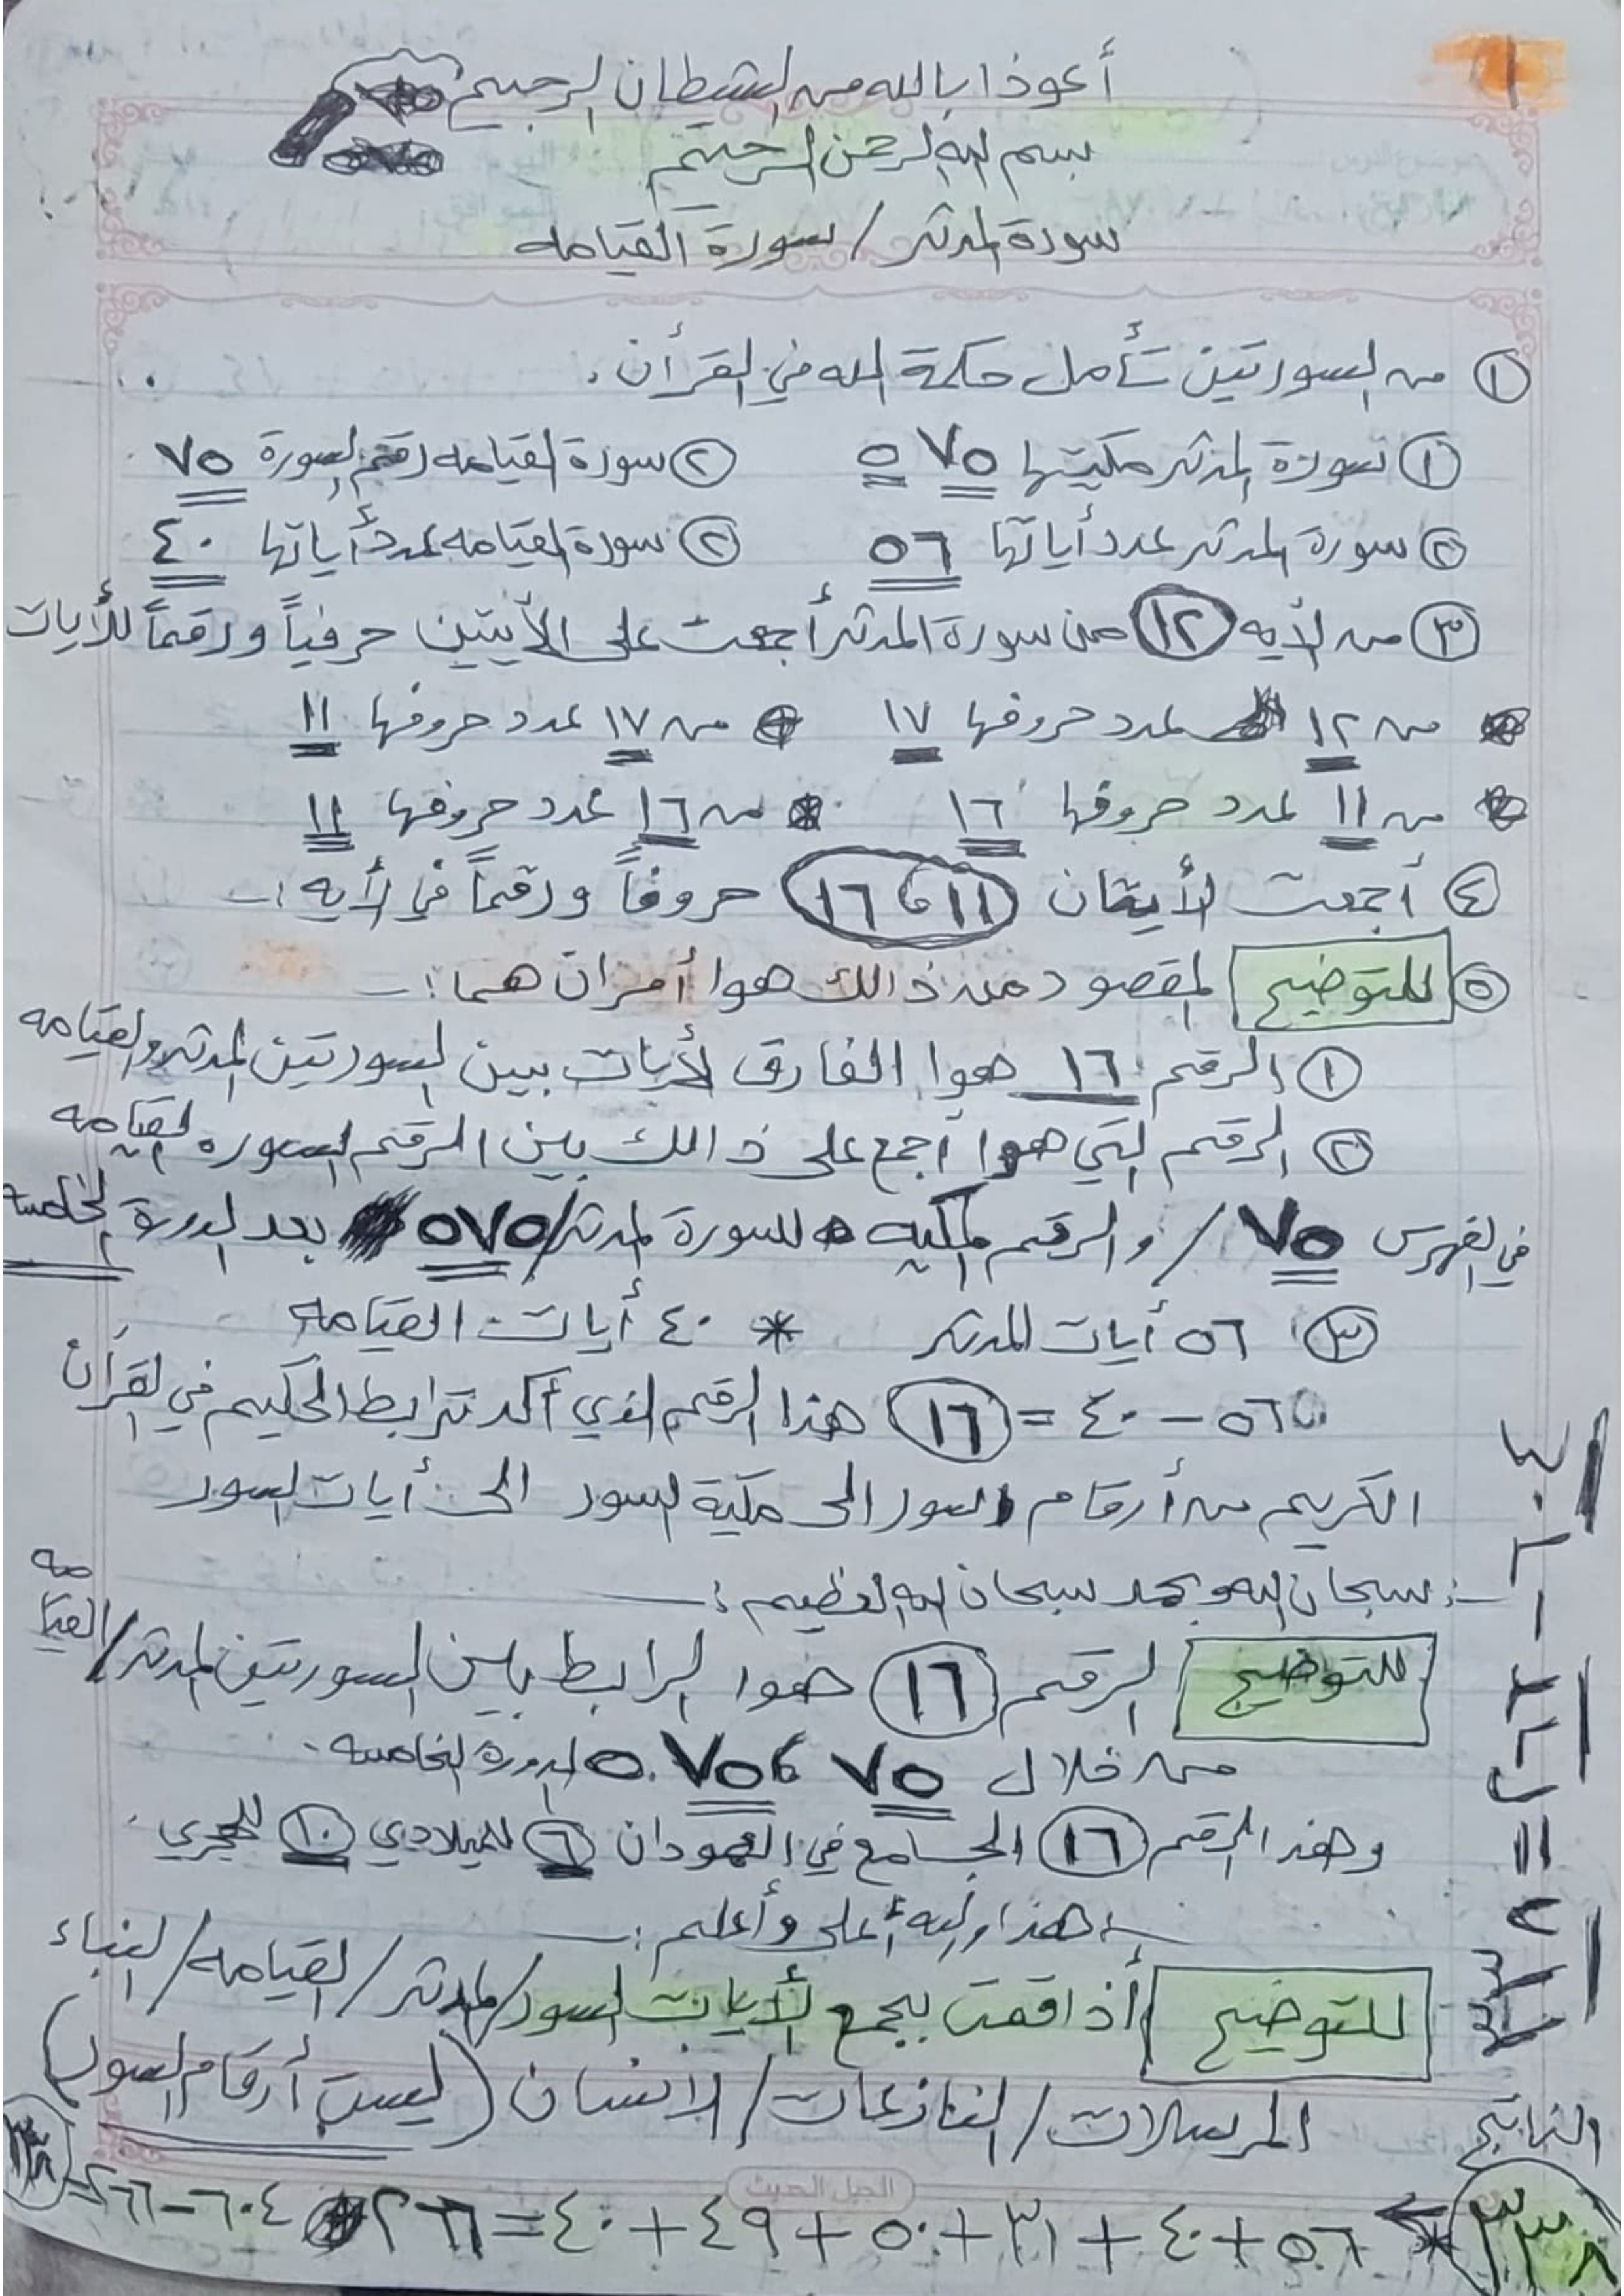 ١
أعوذ بالله من الشيطان الرجيم
بسم الله الرحمن الرحيم
سورة المدثر / سورة القيامه
① من السورتين تأمل حكمة الله في القرأن.
① سورة المدثر مكيتها ٧٥ ٥ ② سورة القيامه رقم السورة ٧٥
② سورة المدثر عدد أياتها ٥٦ ② سورة القيامه عدد أياتها ٤٠
③ من الأيه ⑫ من سورة المدثر أجمعت على الأيتين حرفياً ورقماً للأيات
من ١٢ عدد حروفها ١٧ من ١٧ عدد حروفها ١١
من ١١ عدد حروفها ١٦ * من ١٦ عدد حروفها ١١
④ أجمعت الأيتان (١١ ، ١٦) حروفاً ورقماً في الأيه :ـ
⑤ للتوضيح المقصود من ذالك هوا أمران هما :ـ
① الرقم ١٦ هوا الفارق لأيات بين السورتين المدثر والقيامه
② الرقم التي هوا أجمع على ذالك بين الرقم السوره القيامه
في الفهرس ٧٥ / والرقم المكيه للسورة المدثر / ٥٧٥ بعد الدورة الخامسه
③ ٥٦ أيات المدثر * ٤٠ أيات القيامه
٥٦ - ٤٠ = ⑯ هذا الرقم الذي أكد ترابط الحكيم في القرأن
الكريم من أرقام السور الى مكية السور الى أيات السور
:ـ سبحان الله وبحمد سبحان الله العظيم :ـ
للتوضيح الرقم ⑯ هوا الرابط بين السورتين المدثر / القيامه
من خلال ٧٥ ، ٧٥ ٥ الدورة الخامسه .
وهذ الرقم ⑯ الجامع في العمودان ⑥ للميلادي ⑩ للهجري .
:ـ هذا والله أعلى وأعلم :ـ
للتوضيح أذا قمت بجمع الأيات السور / المدثر / القيامه / النباء
المرسلات / النازعات / الانسان (ليست أرقام السور)
٥٦ + ٤٠ + ٣١ + ٥٠ + ٤٩ + ٤٠ = ٢٦٦ * ٦٠٤ - ٢٦٦ = ٣٣٨
الناتج
٣٣٨